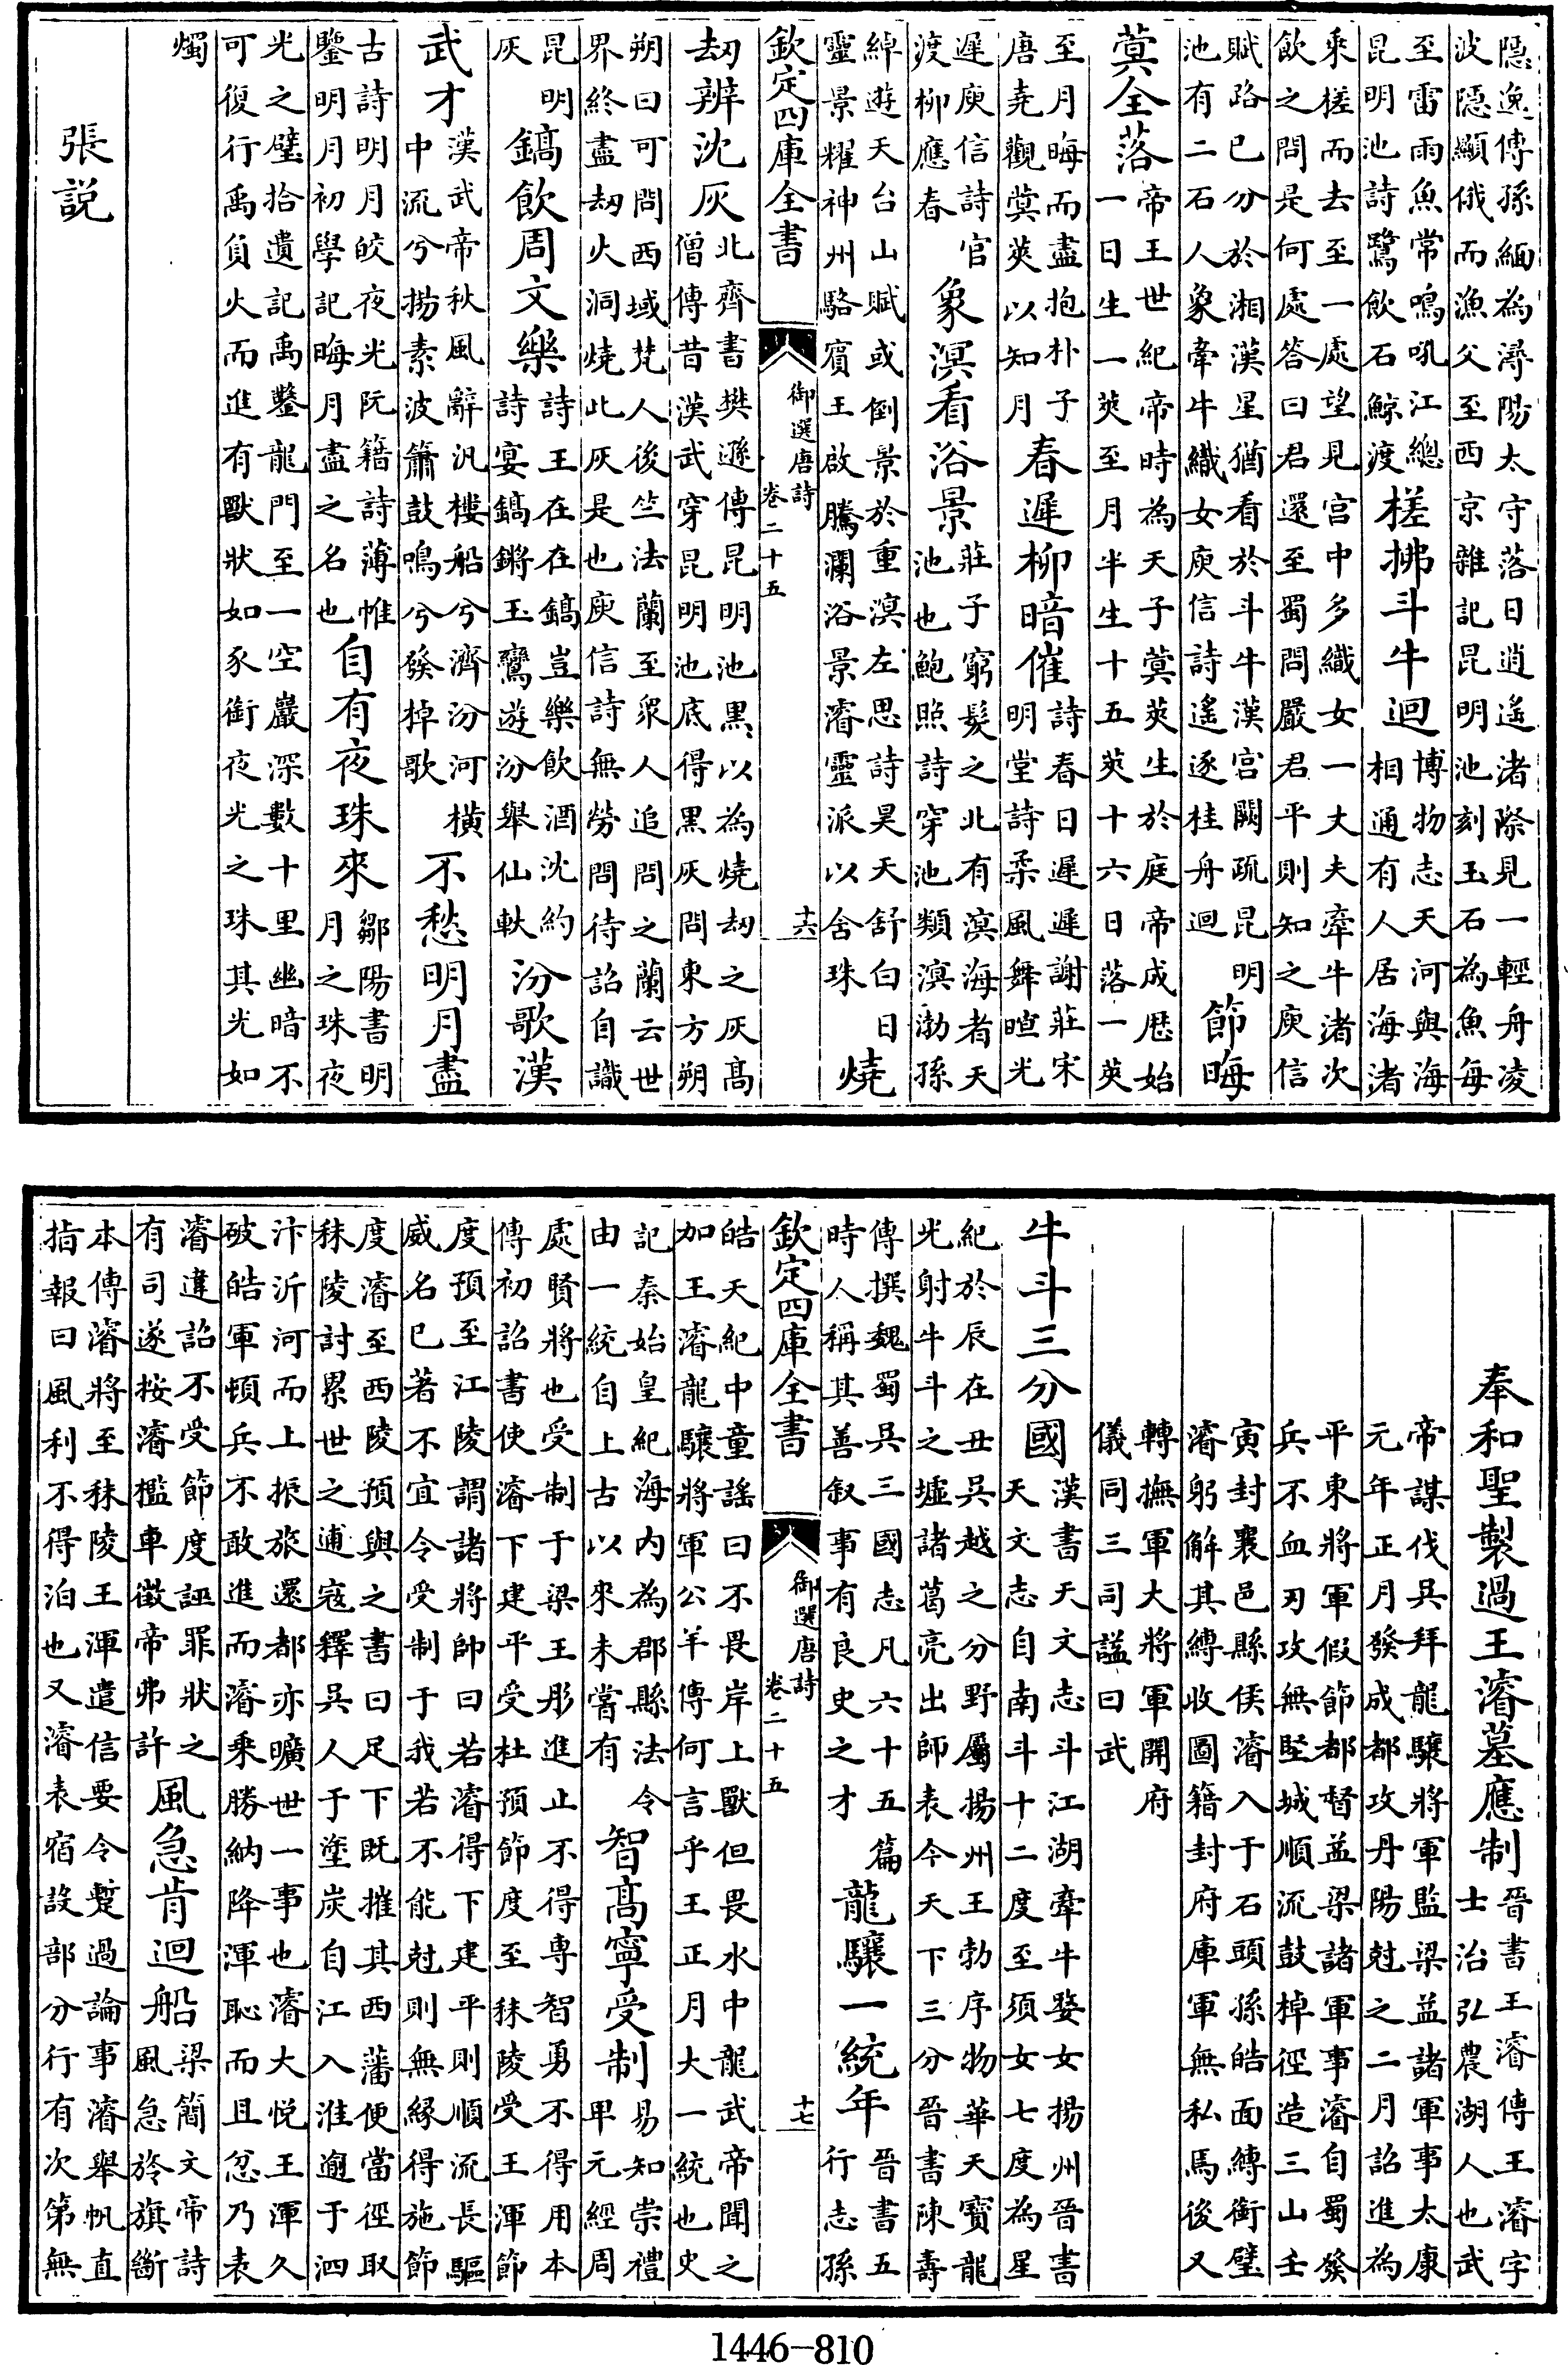 隱逸傳孫緬為潯陽太守落日逍遙渚際見一輕舟凌
波隱顯俄而漁父至西京雜記昆明池刻玉石為魚每
至雷雨魚常鳴吼江總
昆明池詩鷺飲石鯨渡
槎拂斗牛迴
博物志天河與海
相通有人居海渚
乘槎而去至一處望見宮中多織女一丈夫牽牛渚次
飲之問是何處答曰君還至蜀問嚴君平則知之庾信
賦路已分於湘漢星猶看於斗牛漢宮闕疏昆明
池有二石人象牽牛織女庾信詩遙逐桂舟迴
節晦
蓂全落
帝王世紀帝時為天子蓂莢生於庭帝成厯始
一日生一莢至月半生十五莢十六日落一莢
至月晦而盡抱朴子
唐堯觀蓂莢以知月
春遲柳暗催
詩春日遲遲謝莊宋
明堂詩柔風舞暄光
遲庾信詩官
渡柳應春
象溟看浴景
莊子窮髮之北有溟海者天
池也鮑照詩穿池類溟渤孫
綽遊天台山賦或倒景於重溟左思詩昊天舒白日
靈景耀神州駱賓王啟騰瀾浴景濬靈派以舍珠
燒
欽定四庫全書
御選唐詩
卷二十五
十六
刼辨沈灰
北齊書樊遜傳昆明池黑以為燒刼之灰高
僧傳昔漢武穿昆明池底得黑灰問東方朔
朔曰可問西域梵人後竺法蘭至衆人追問之蘭云世
界終盡刼火洞燒此灰是也庾信詩無勞問待詔自識
昆明
灰
鎬飲周文樂
詩王在在鎬豈樂飲酒沈約
詩宴鎬鏘玉鸞遊汾舉仙軑
汾歌漢
武才
漢武帝秋風辭汎樓船兮濟汾河橫
中流兮揚素波簫鼓鳴兮發棹歌
不愁明月盡
古詩明月皎夜光阮籍詩薄帷
鑒明月初學記晦月盡之名也
自有夜珠來
鄒陽書明
月之珠夜
光之璧拾遺記禹鑿龍門至一空巖深數十里幽暗不
可復行禹負火而進有獸狀如豕銜夜光之珠其光如
燭
張説
奉和聖製過王濬墓應制
晉書王濬傳王濬字
士治弘農湖人也武
帝謀伐吳拜龍驤將軍監梁益諸軍事太康
元年正月發成都攻丹陽尅之二月詔進為
平東將軍假節都督益梁諸軍事濬自蜀發
兵不血刃攻無堅城順流鼓棹徑造三山壬
寅封襄邑縣侯濬入于石頭孫皓面縛銜璧
濬躬解其縛收圖籍封府庫軍無私馬後又
轉撫軍大將軍開府
儀同三司諡曰武
牛斗三分國
漢書天文志斗江湖牽牛婺女揚州晉書
天文志自南斗十二度至須女七度為星
紀於辰在丑吳越之分野屬揚州王勃序物華天寶龍
光射牛斗之墟諸葛亮出師表今天下三分晉書陳壽
傳撰魏蜀吳三國志凡六十五篇
時人稱其善叙事有良史之才
龍驤一統年
晉書五
行志孫
欽定四庫全書
御選唐詩
卷二十五
十七
皓天紀中童謠曰不畏岸上獸但畏水中龍武帝聞之
加王濬龍驤將軍公羊傳何言乎王正月大一統也史
記秦始皇紀海内為郡縣法令
由一統自上古以來未嘗有
智高寧受制
易知崇禮
卑元經周
處賢將也受制于梁王彤進止不得專智勇不得用本
傳初詔書使濬下建平受杜預節度至秣陵受王渾節
度預至江陵謂諸將帥曰若濬得下建平則順流長驅
威名已著不宜令受制于我若不能尅則無緣得施節
度濬至西陵預與之書曰足下既摧其西藩便當徑取
秣陵討累世之逋寇釋吳人于塗炭自江入淮逾于泗
汴沂河而上振旅還都亦曠世一事也濬大悅王渾久
破皓軍頓兵不敢進而濬乘勝納降渾恥而且忿乃表
濬違詔不受節度誣罪狀之
有司遂按濬檻車徵帝弗許
風急肯迴船
梁簡文帝詩
風急於旗斷
本傳濬將至秣陵王渾遣信要令蹔過論事濬舉帆直
指報曰風利不得泊也又濬表宿設部分行有次第無
1446-810